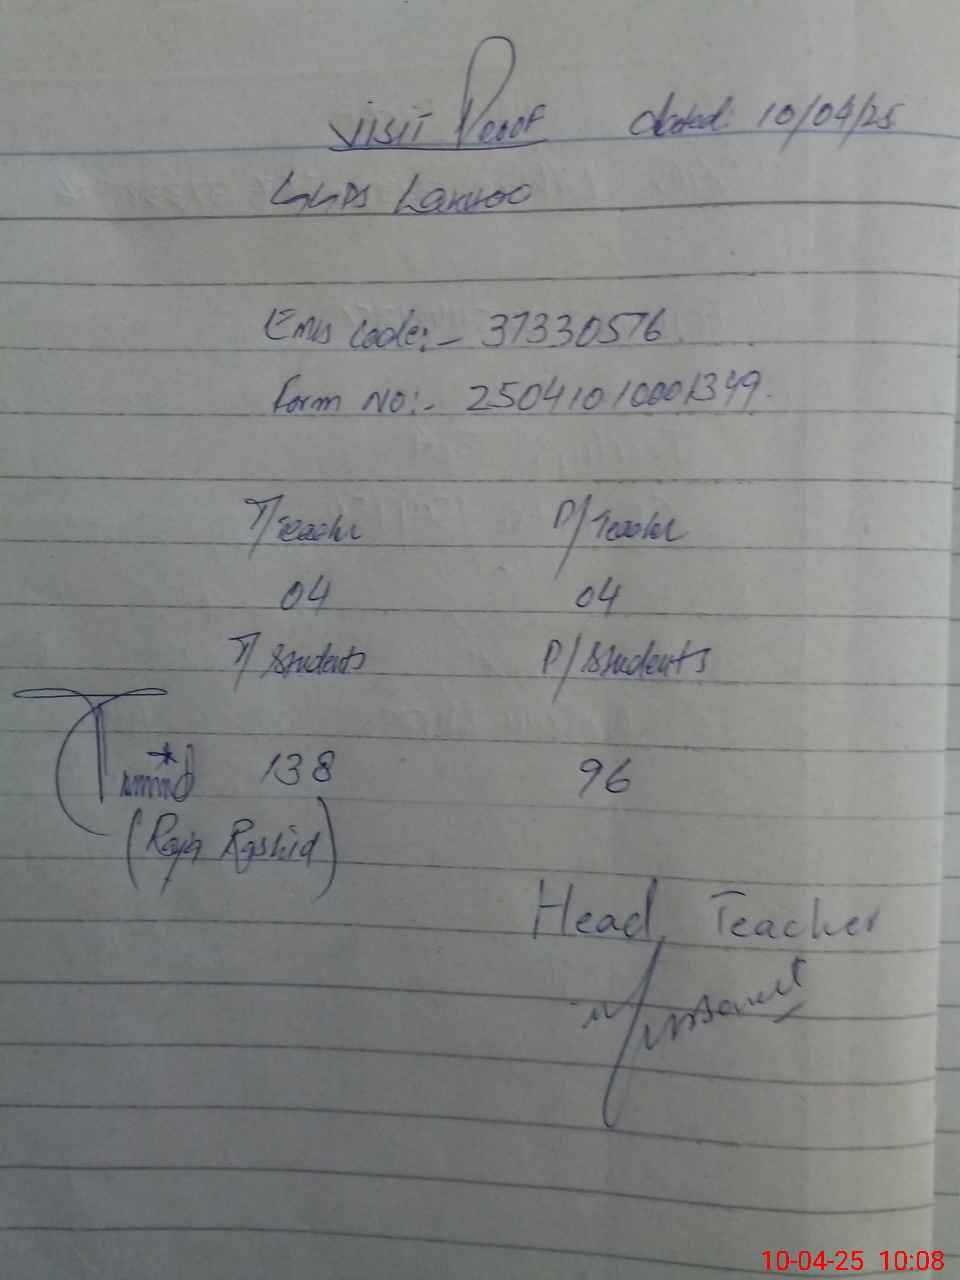 Visit Proof dated: 10/04/25
GGPS Lakhoo
Emis code:- 37330576
Form No:- 25041010001349.
T/Teacher P/Teacher
04 04
T/Students P/Students
138 96
(Raja Rashid)
Head Teacher
10-04-25 10:08